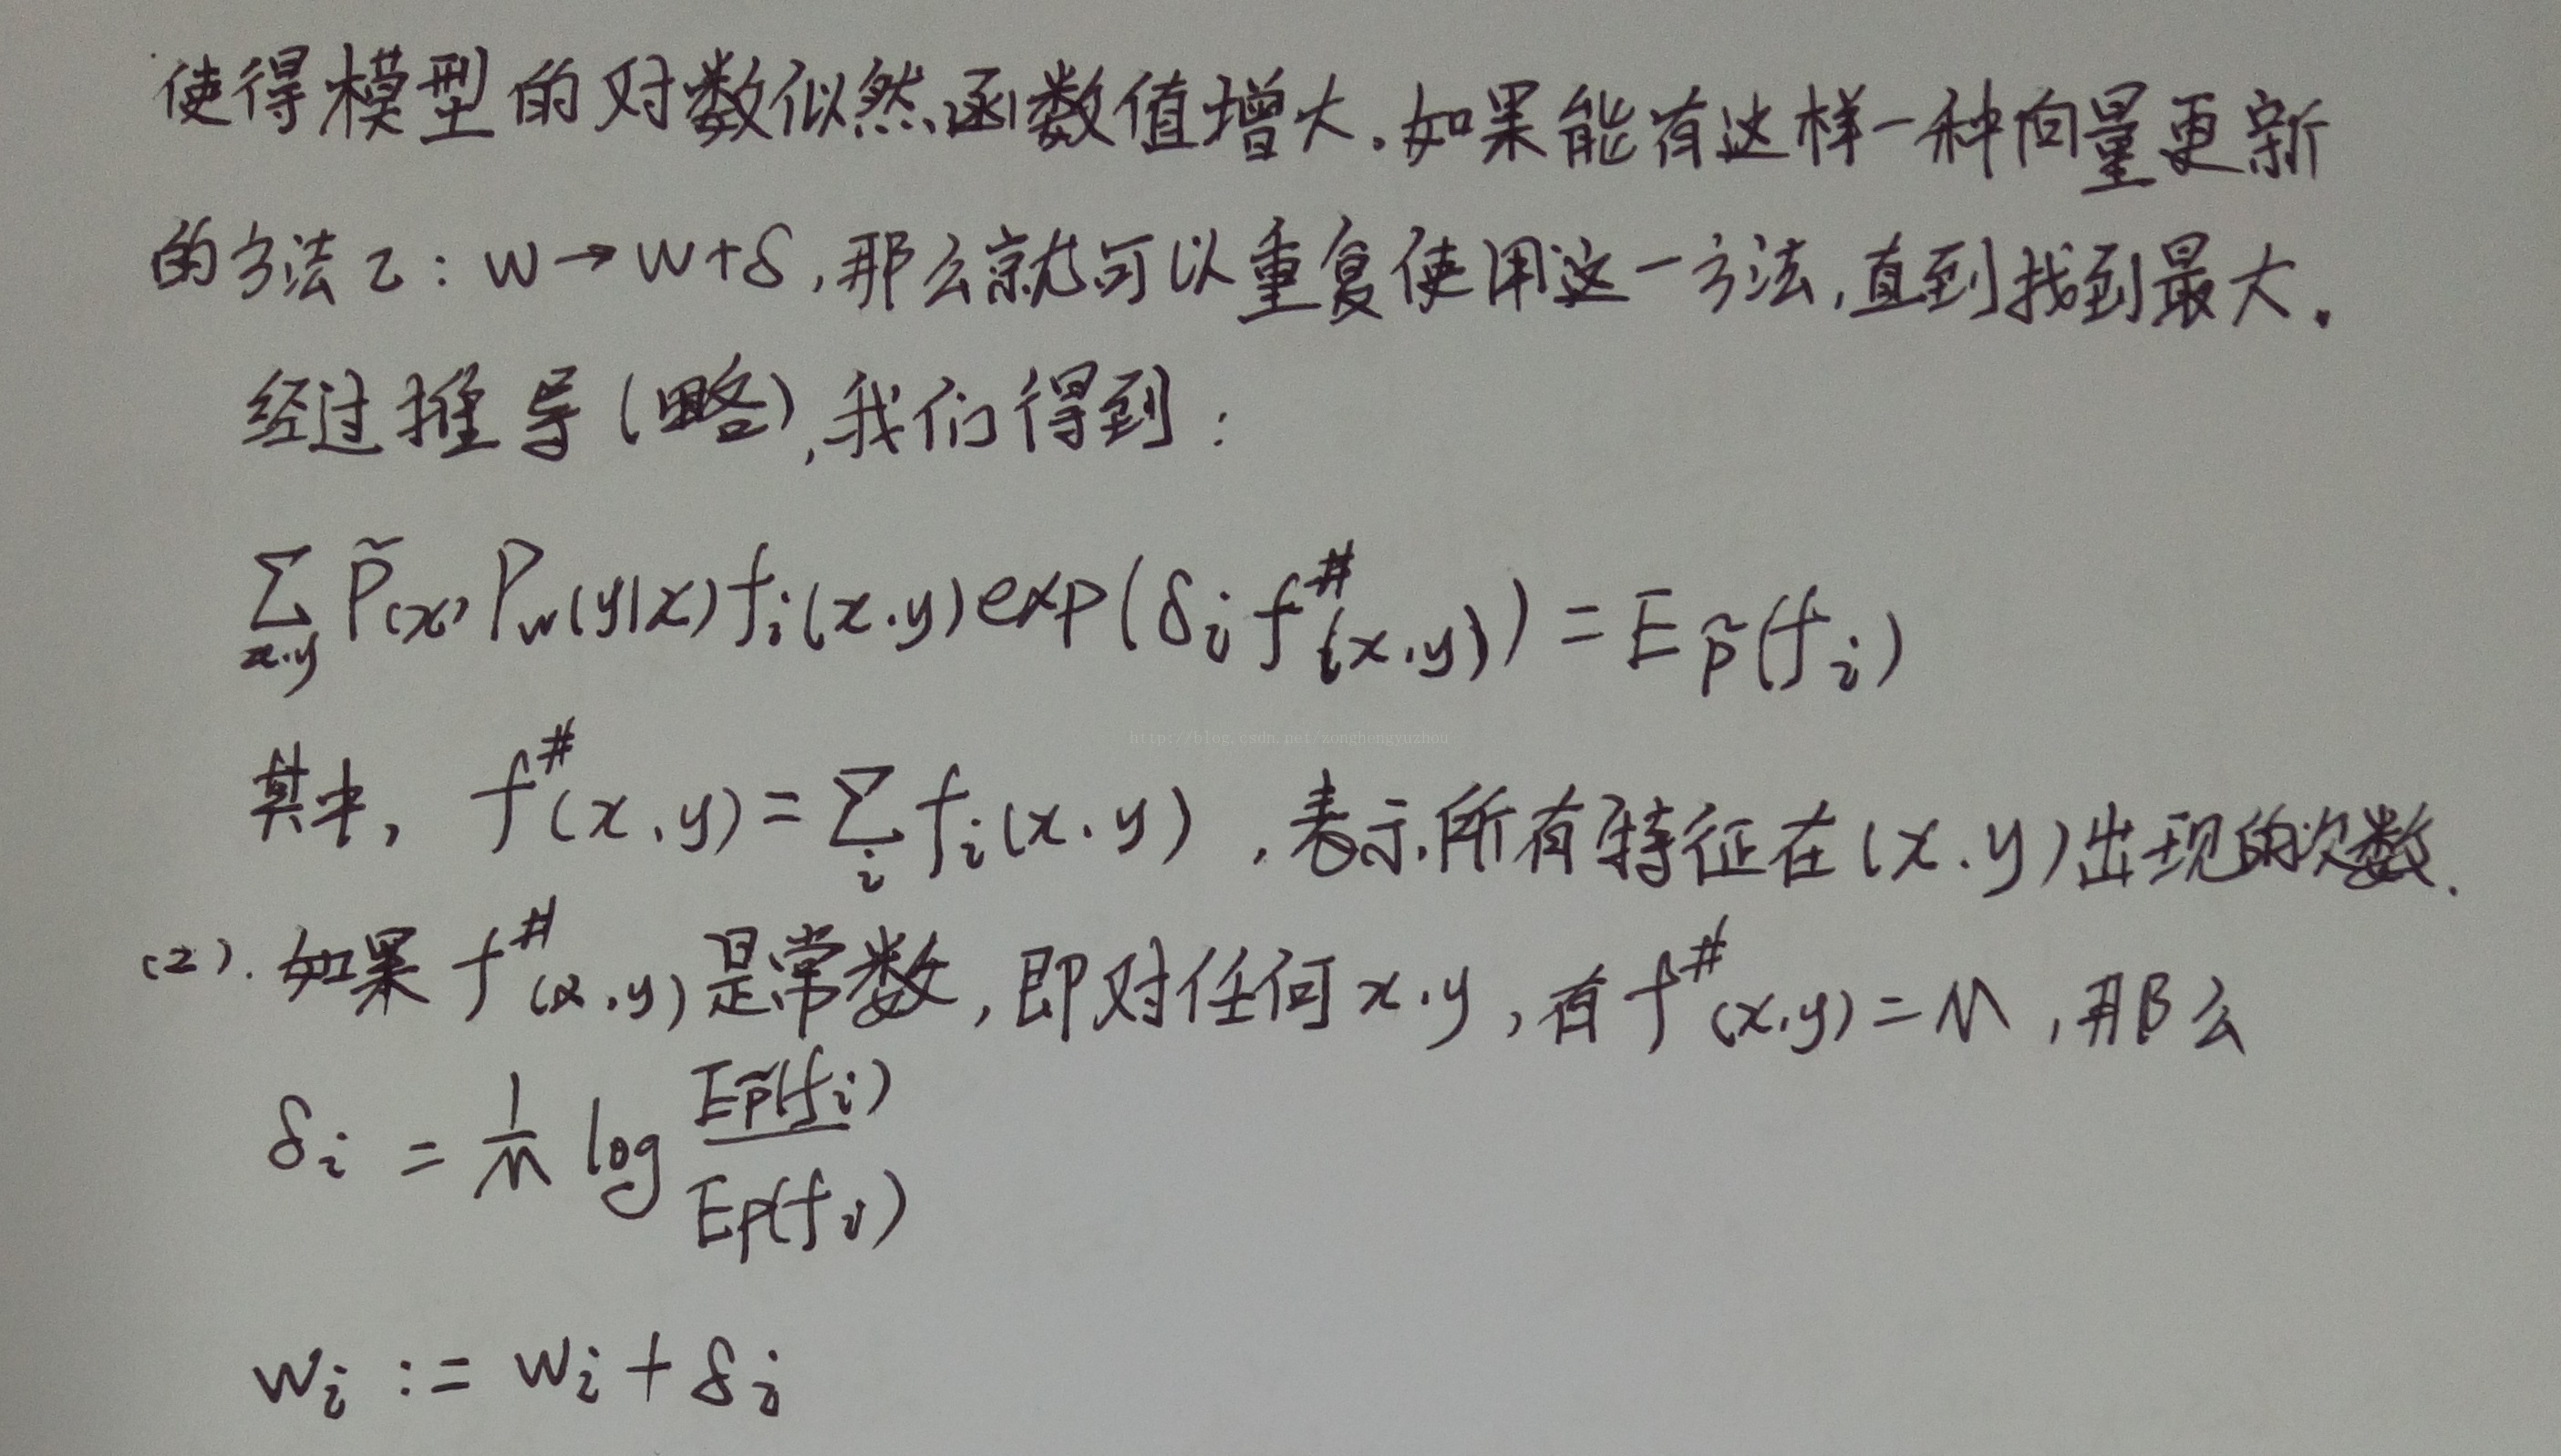 使得模型的对数似然函数值增大.如果能有这样一种向量更新
的方法τ: w→w+δ,那么就可以重复使用这一方法,直到找到最大.
经过推导(略),我们得到:
∑_{x.y} P̃(x) P_w(y|x) f_i(x.y) exp(δ_i f^#(x.y)) = E_P̃(f_i)
http://blog.csdn.net/zonghengyuzhou
其中, f^#(x.y) = ∑_i f_i(x.y) ,表示所有特征在(x.y)出现的次数.
(2).如果 f^#(x.y)是常数,即对任何x.y,有f^#(x.y)=M,那么
δ_i = 1/M log E_P̃(f_i)/E_P(f_i)
w_i := w_i + δ_i